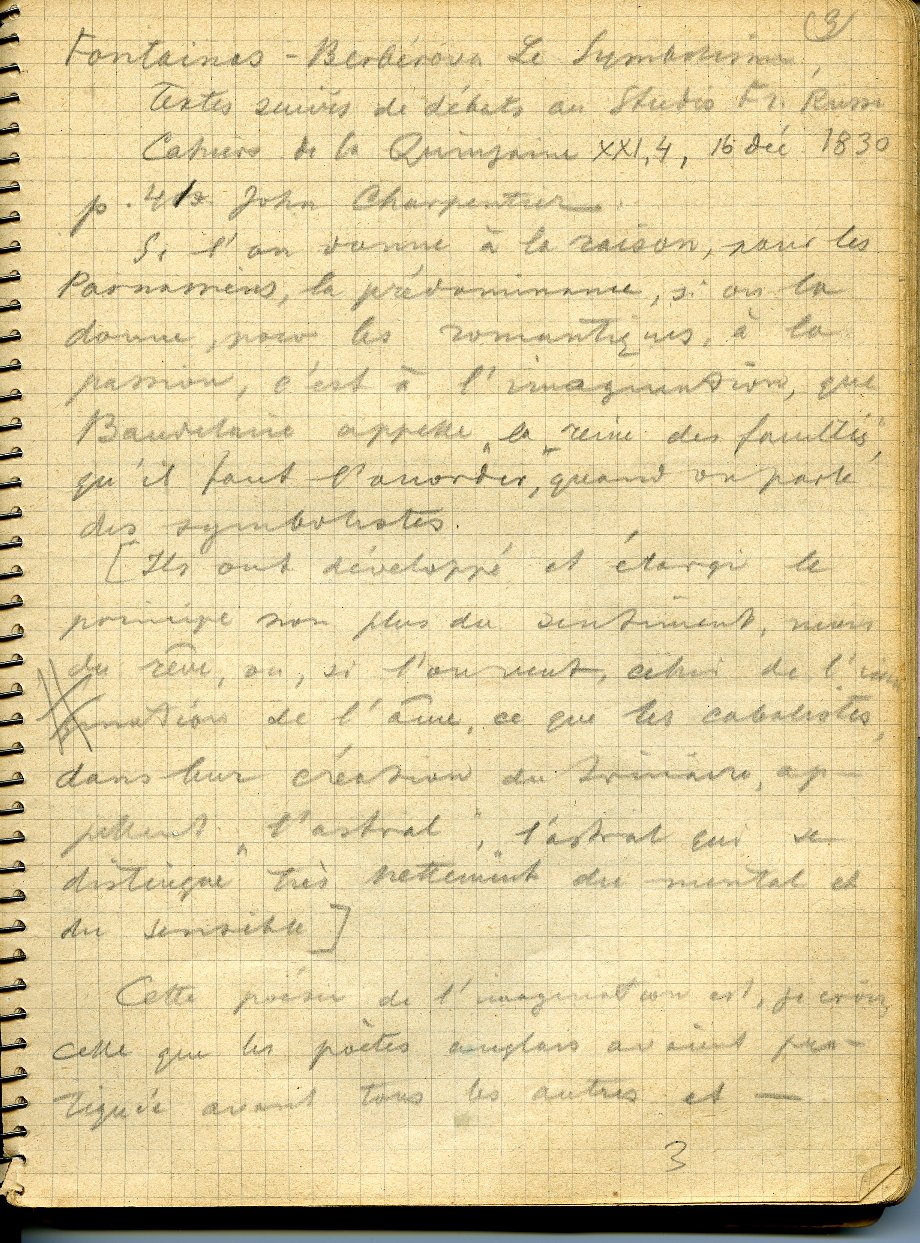 3
Fontainas - Berbérova Le Symbolisme,
Textes suivis de débats au Studio Fr. Russe
Cahiers de la Quinzaine XXI, 4, 16 déc. 1830
p. John Charpentier.
Si l'on donne à la raison, pour les
Parnassiens, la prédominance, si on la
donne, pour les romantiques, à la
passion, c'est à l'imagination, que
Baudelaire appelle "la reine des facultés",
qu'il faut l'accorder, quand on parle
des symbolistes.
[Ils ont développé et élargi le
principe non plus du sentiment, mais
du rêve, ou, si l'on veut, celui de l'ima-
gination de l'âme, ce que les cabalistes,
dans leur création du trinaire, ap-
pellent "l'astral", l'astral qui se
distingue très nettement du mental et
du sensible]
Cette poésie de l'imagination est, je crois,
celle que les poètes anglais avaient pra-
tiquée avant tous les autres et —
3